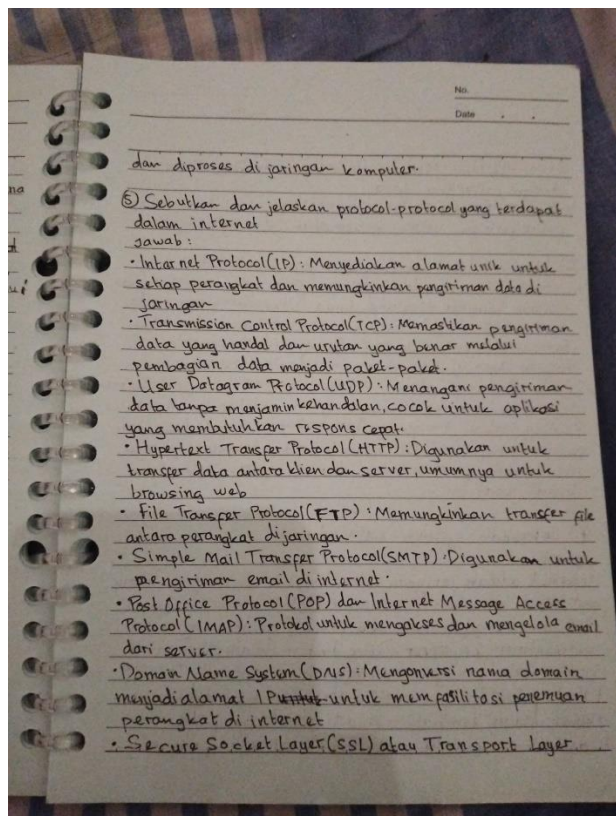 No.
Date
dan diproses di jaringan komputer.
⑤ Sebutkan dan jelaskan protocol-protocol yang terdapat
dalam internet
Jawab :
• Intarnet Protocol (IP) : Menyediakan alamat unik untuk
setiap perangkat dan memungkinkan pangiriman data di
jaringan
• Transmission Control Protocol (TCP) : Memastikan pengiriman
data yang handal dan urutan yang benar melalui
pembagian data menjadi paket-paket.
• User Datagram Protocol (UDP) : Menangani pengiriman
data tanpa menjamin kehandalan, cocok untuk aplikasi
yang membutuhkan respons cepat.
• Hypertext Transfer Protocol (HTTP) : Digunakan untuk
transfer data antara klien dan server, umumnya untuk
browsing web
• File Transfer Protocol (FTP) : Memungkinkan transfer file
antara perangkat di jaringan.
• Simple Mail Transfer Protocol (SMTP) : Digunakan untuk
pengiriman email di internet.
• Post Office Protocol (POP) dan Internet Message Access
Protocol (IMAP) : Protokol untuk mengakses dan mengelola email
dari server.
• Domain Name System (DNS) : Mengonversi nama domain
menjadi alamat IP untuk memfasilitasi penemuan
perangkat di internet
• Secure Socket Layer (SSL) atau Transport Layer